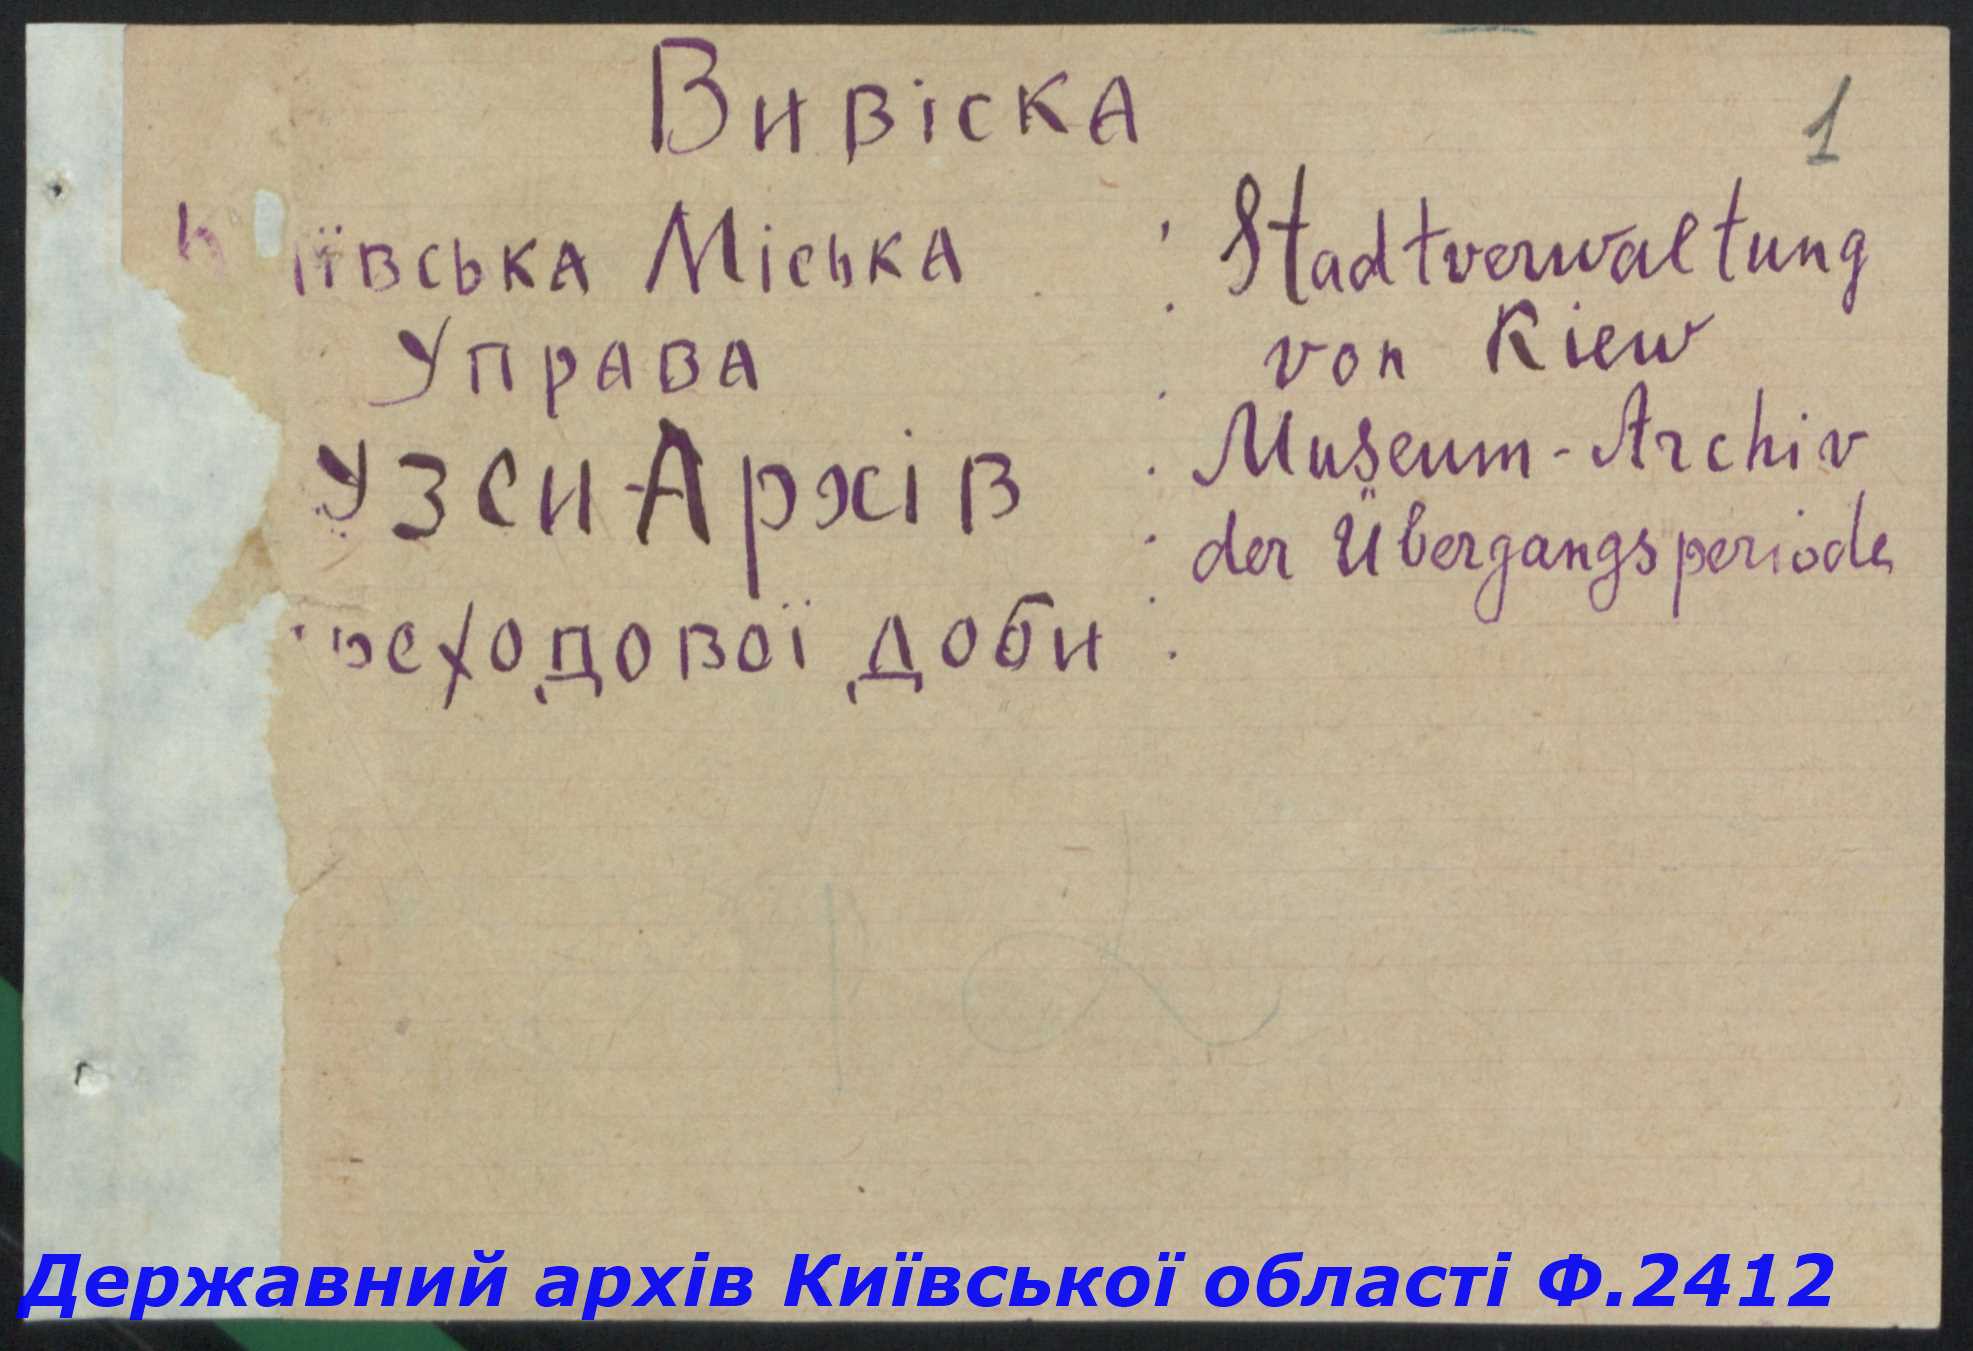 Вивіска
1
Київська Міська
Управа
узеи-Архів
реходової доби
Stadtverwaltung
von Kiew
Museum-Archiv
der Übergangsperiode
Державний архів Київської області Ф.2412